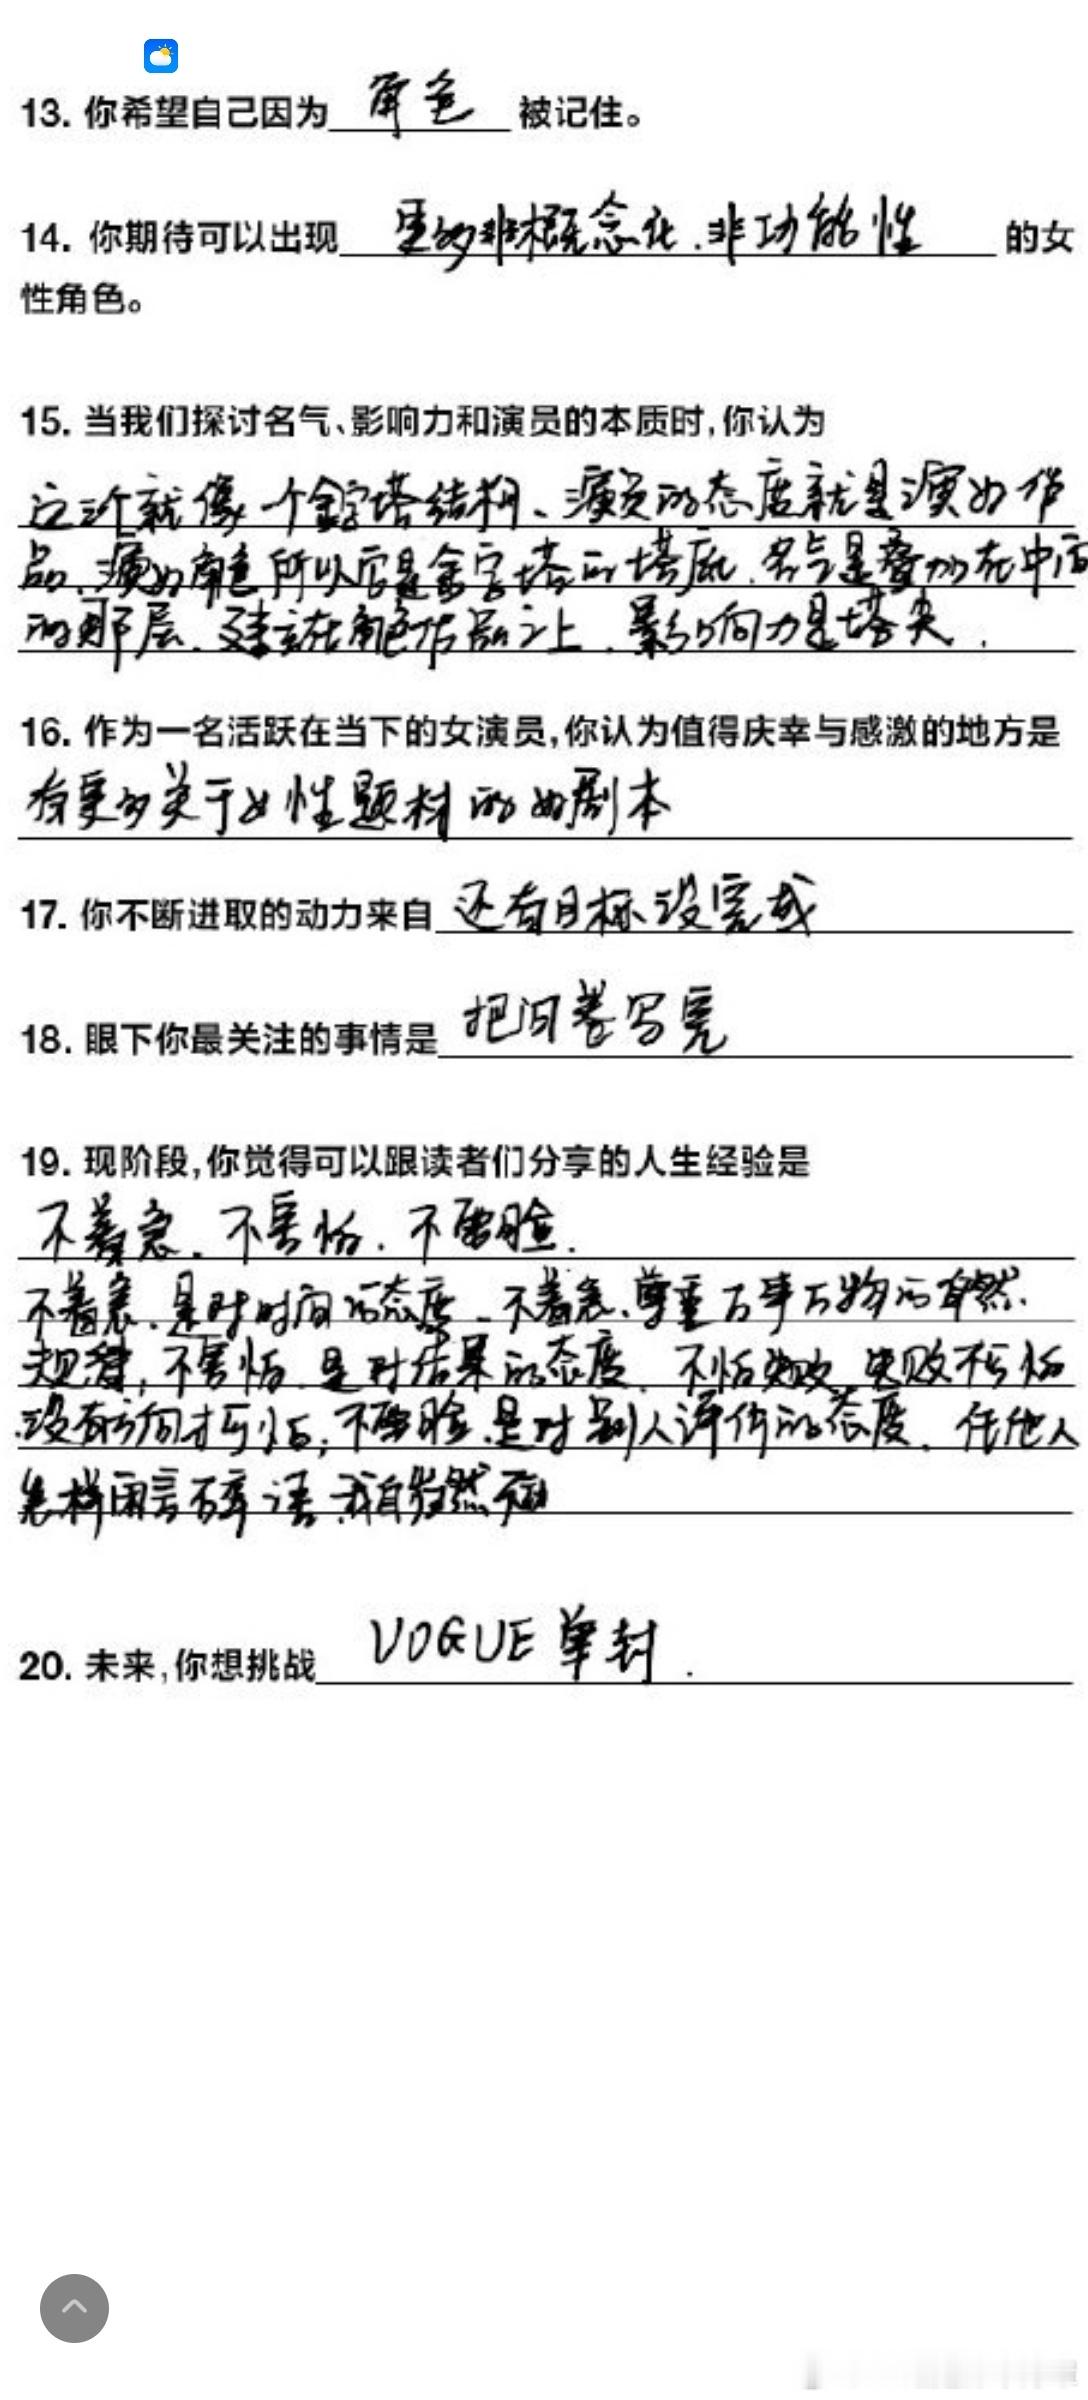 13. 你希望自己因为 角色 被记住。
14. 你期待可以出现 更多非概念化.非功能性 的女
性角色。
15. 当我们探讨名气、影响力和演员的本质时,你认为
这三个就像一个金字塔结构、演员的态度就是演好作
品、演好角色所以它是金字塔的塔底.名气是叠加在中间
的那层.建立在角色作品之上.影响力是塔尖.
16. 作为一名活跃在当下的女演员,你认为值得庆幸与感激的地方是
有更多关于女性题材的好剧本
17. 你不断进取的动力来自 还有目标没完成
18. 眼下你最关注的事情是 把问卷写完
19. 现阶段,你觉得可以跟读者们分享的人生经验是
不着急.不害怕.不要脸.
不着急.是对时间的态度.不着急.尊重万事万物的自然.
规律,不害怕.是对结果的态度.不怕失败.失败不可怕
没有方向才可怕;不要脸.是对别人评价的态度.任他人
怎样闲言碎语.我自岿然不动
20. 未来,你想挑战 VOGUE单封.